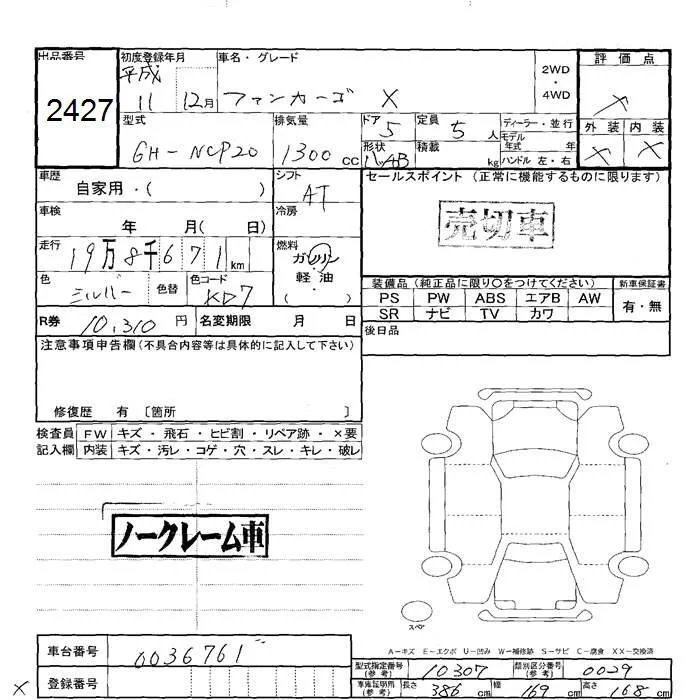 出品番号
2427
初度登録年月
平成
11 12月
車名・グレード
ファンカーゴ X
2WD
・
4WD
評価点
×
外装 内装
× ×
型式
GH-NCP20
排気量
1300 cc
ドア
5
形状
ハッチB
定員
5 人
積載
kg
ディーラー・並行
モデル
年式 年
ハンドル 左・右
車歴
自家用・( )
シフト
AT
セールスポイント (正常に機能するものに限ります)
売切車
車検
年 月( 日)
冷房
走行
19万8千671 km
燃料
ガソリン
・
軽油
・
( )
色
シルバー
色替
色コード
装備品 (純正品に限り○をつけてください)
新車保証書
PS PW ABS エアB AW
SR ナビ TV カワ
有・無
R券 10,310 円
名変期限 月 日
後日品
注意事項申告欄 (不具合内容等は具体的に記入して下さい)
修復歴 有 〔箇所 〕
検査員 FW キズ・飛石・ヒビ割・リペア跡・×要
記入欄 内装 キズ・汚レ・コゲ・穴・スレ・キレ・破レ
ノークレーム車
スペア
A-キズ E-エクボ U-凹み W-補修跡 S-サビ C-腐食 XX-交換済
車台番号 0036761
型式指定番号
(参考)
10307
類別区分番号
(参考)
0029
× 登録番号
車庫証明用
(参考)
長さ 386 cm 幅 169 cm 高さ 168 cm